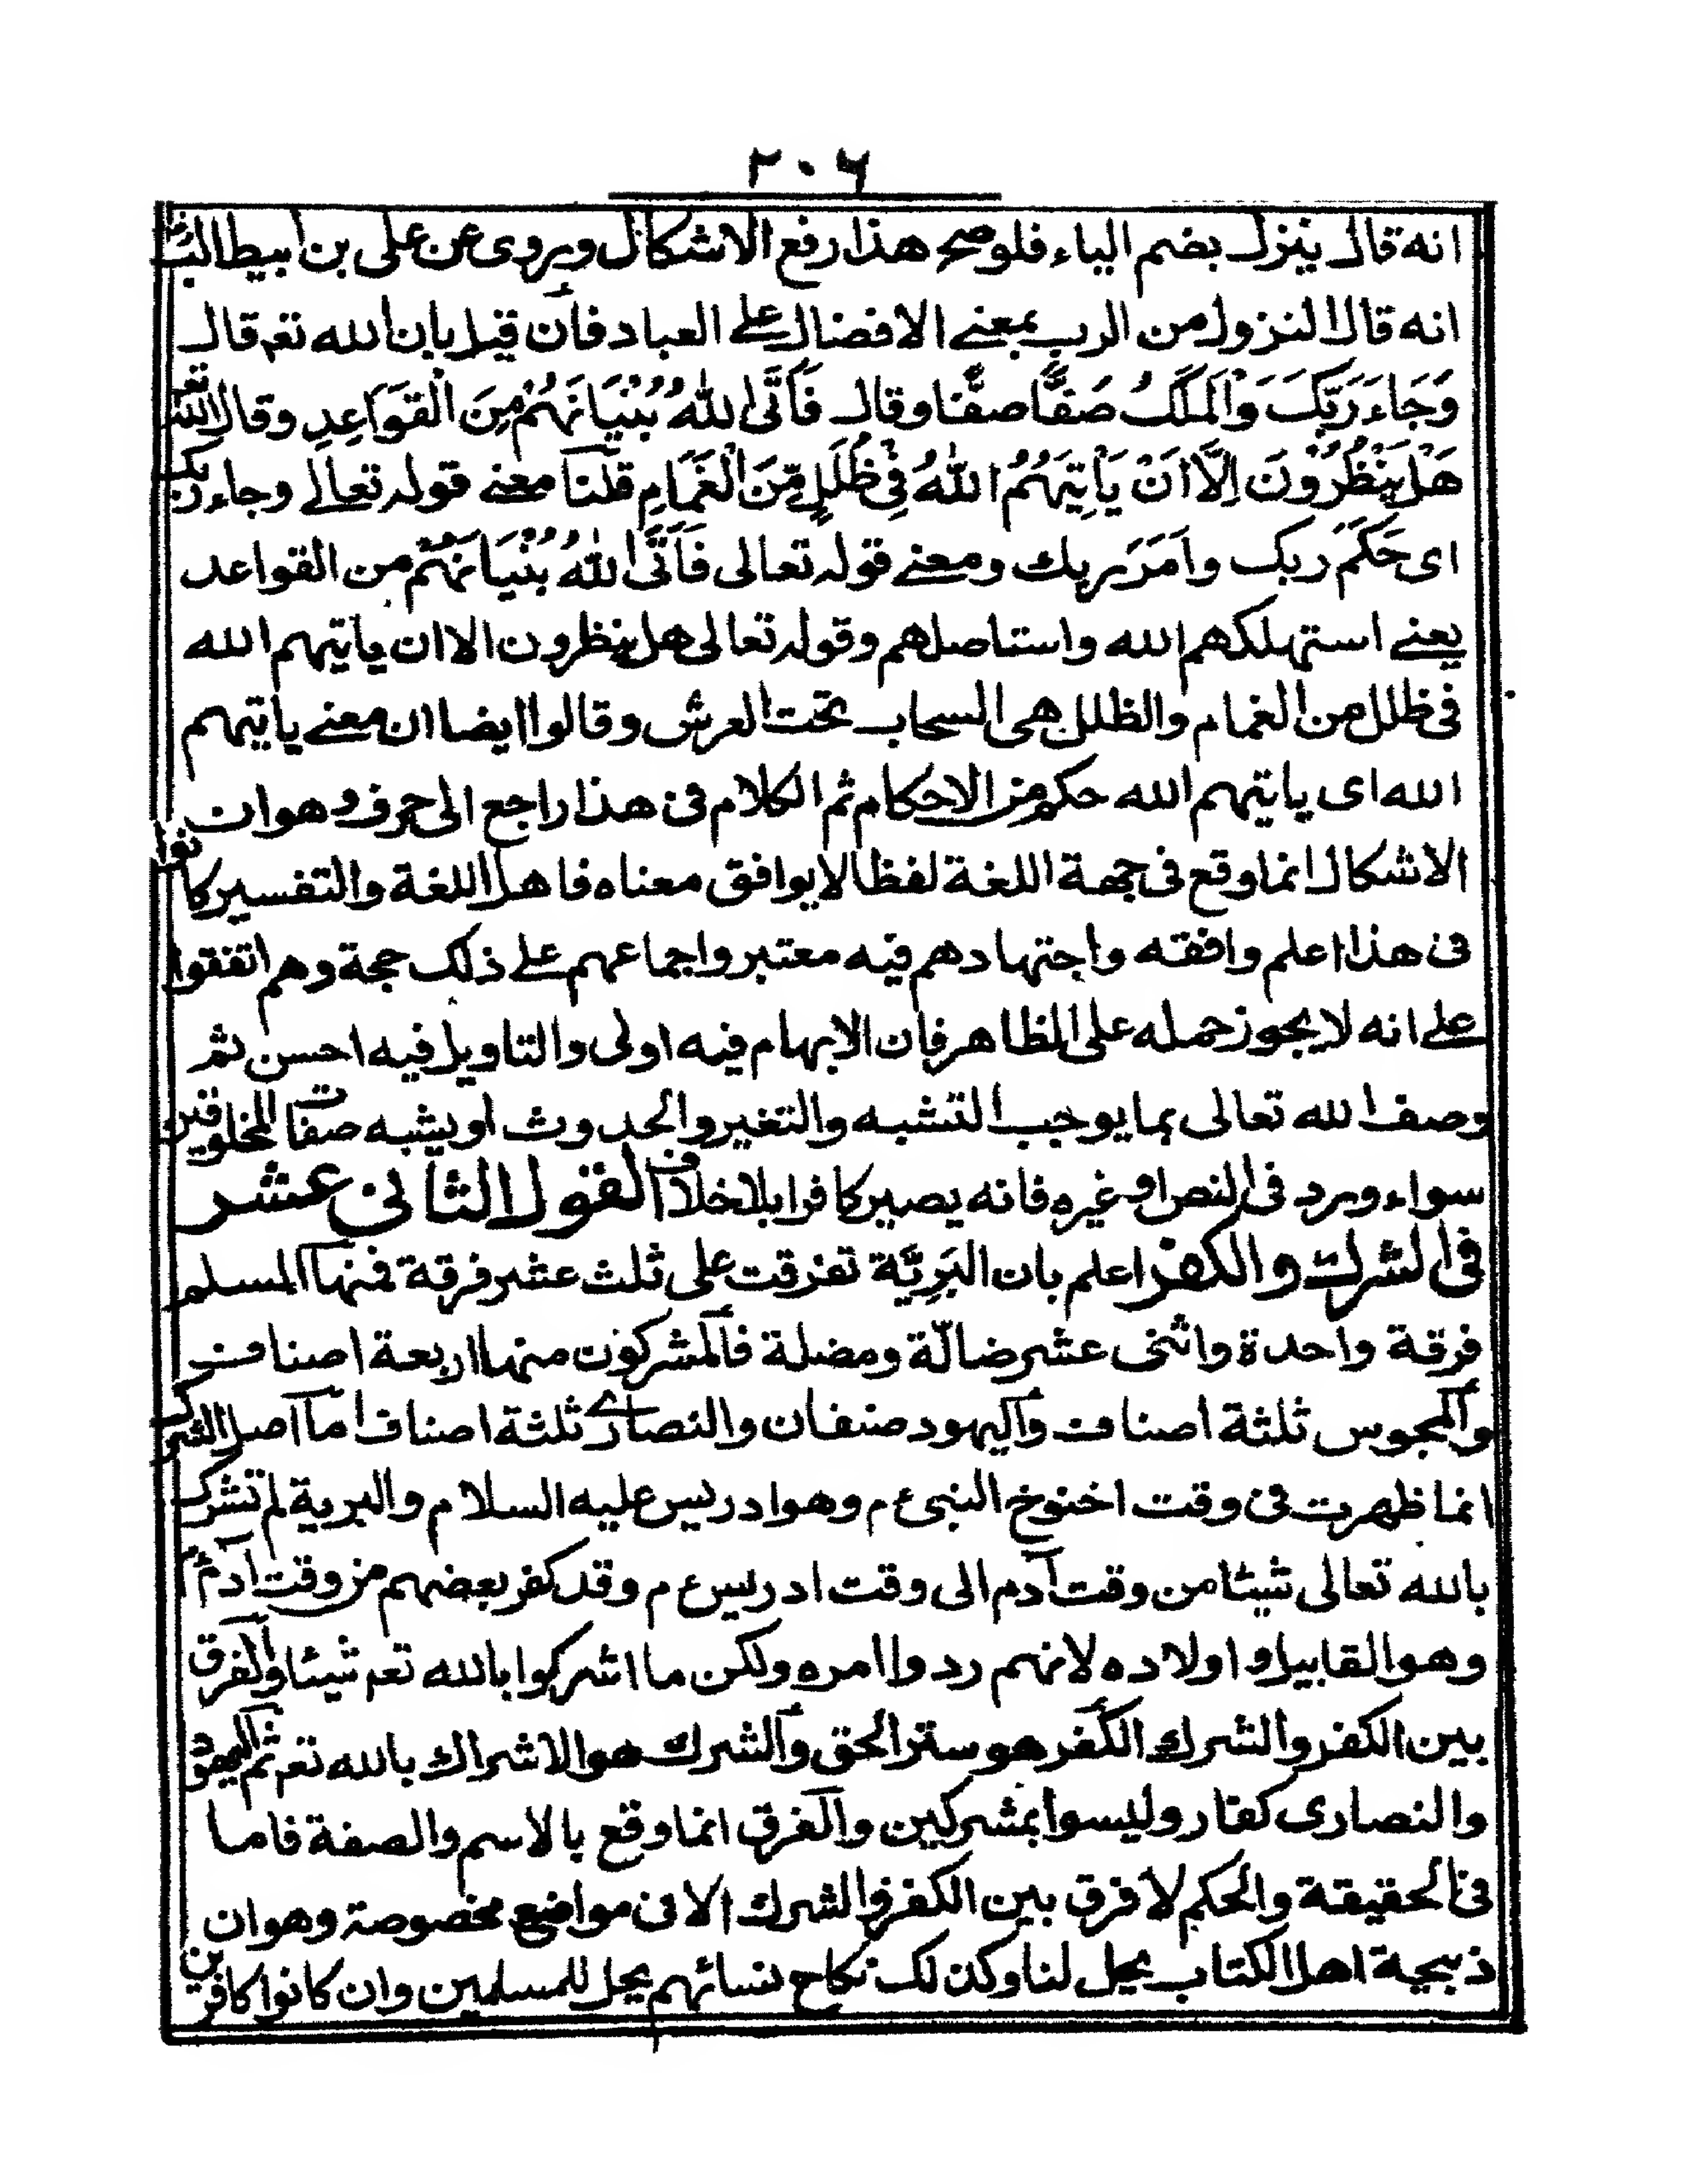 ٢٠٦
انه قال ينزل بضم الياء فلو صح هذا رفع الاشكال ويروى عن على بن ابيطالب رض
انه قال النزول من الرب بمعنى الافضال على العباد فان قيل بان الله تعم قال
وَجَاءَ رَبُّكَ وَالْمَلَكُ صَفًّا صفًّا وقال فَأَتَى اللهُ بُنْيَانَهُمْ مِنَ الْقَوَاعِدِ وقال الله تعم
هَلْ يَنْظُرُوْنَ اِلَّا اَنْ يَأْتِيَهُمُ اللهُ فِىْ ظُلَلٍ مِّنَ الْغَمَامِ قلنا معنى قوله تعالى وجاء ربك
اى حَكَمَ ربك وامَرَ ربك ومعنى قوله تعالى فَأَتَى اللهُ بُنْيَانَهُمْ من القواعد
يعنى استهلكهم الله واستاصلهم وقوله تعالى هل ينظرون الا ان ياتيهم الله
فى ظلل من الغمام والظلل هى السحاب تحت العرش وقالوا ايضا ان معنى ياتيهم
الله اى ياتيهم الله حكم من الاحكام ثم الكلام فى هذا راجع الى حرف وهو ان
الاشكال انما وقع فى جهة اللغة لفظا لا يوافق معناه فاهل اللغة والتفسير كانوا
فى هذا اعلم وافقه واجتهادهم فيه معتبر واجماعهم على ذلك حجة وهم اتفقوا
على انه لا يجوز حمله على الظاهر فان الابهام فيه اولى والتاويل فيه احسن ثم
وصف الله تعالى بما يوجب التشبه والتغير والحدوث او يشبه صفات المخلوقين
سواء ورد فى النص او غيره فانه يصير كافرا بلا خلاف القول الثانى عشر
فى الشرك والكفر اعلم بان البَرِيَّة تفرقت على ثلث عشر فرقة فمنها المسلم
فرقة واحدة واثنى عشر ضالّة ومضلة فالمشركون منها اربعة اصناف
والمجوس ثلثة اصناف واليهود صنفان والنصارى ثلثة اصناف اما اصل الشرك
انما ظهرت فى وقت اخنوخ النبى ع م وهو ادريس عليه السلام والبرية لم تشرك
بالله تعالى شيئا من وقت آدم الى وقت ادريس ع م وقد كفر بعضهم من وقت آدم ع م
وهو القابيل و اولاده لانهم ردوا امره ولكن ما اشركوا بالله تعم شيئا والفرق
بين الكفر والشرك الكفر هو ستر الحق والشرك هو الاشراك بالله تعم ثم اليهود
والنصارى كفار وليسوا بمشركين والفرق انما وقع بالاسم والصفة فاما
فى الحقيقة والحكم لا فرق بين الكفر والشرك الا فى مواضع مخصوصة وهو ان
ذبيحة اهل الكتاب يحل لنا وكذلك نكاح نسائهم يحل للمسلمين وان كانوا كافرين